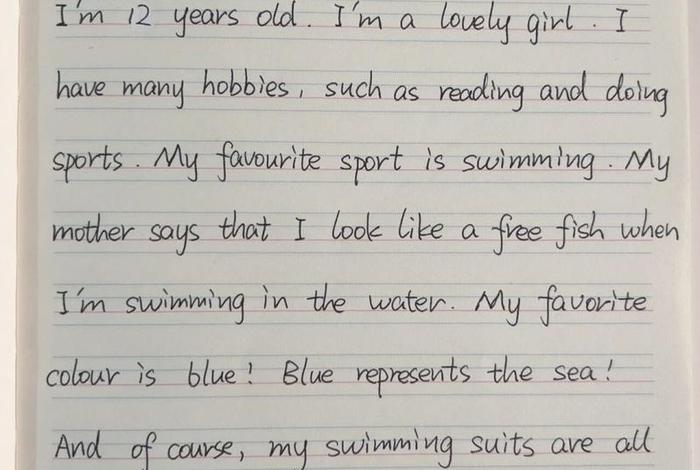 I'm 12 years old. I'm a lovely girl. I
have many hobbies, such as reading and doing
sports. My favourite sport is swimming. My
mother says that I look like a free fish when
I'm swimming in the water. My favorite
colour is blue! Blue represents the sea!
And of course, my swimming suits are all